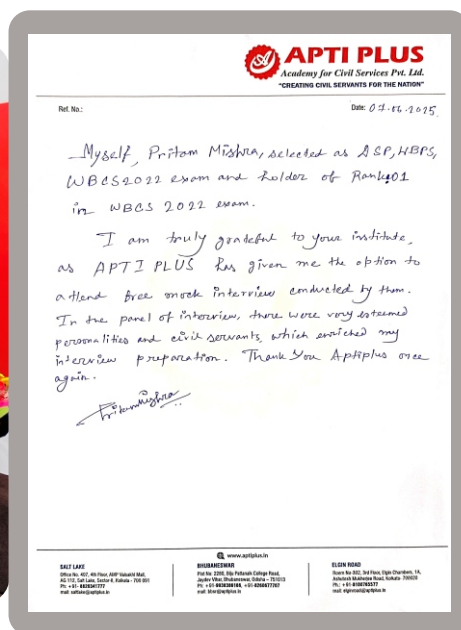 APTI PLUS
Academy for Civil Services Pvt. Ltd.
"CREATING CIVIL SERVANTS FOR THE NATION"
Ref. No.: Date: 07.06.2025
Myself, Pritam Mishra, selected as DSP, WBPS,
WBCS2022 exam and holder of Rank 01
in WBCS 2022 exam.
I am truly grateful to your institute,
as APTI PLUS has given me the option to
attend free mock interview conducted by them.
In the panel of interview, there were very esteemed
personalities and civil servants, which enriched my
interview preparation. Thank You Aptiplus once
again.
Pritam Mishra
www.aptiplus.in
SALT LAKE
Office No. 407, 4th Floor, AMP Vaisakhi Mall,
AG 112, Salt Lake, Sector-II, Kolkata - 700 091
mail: saltlake@aptiplus.in
BHUBANESWAR
Plot No. 2298, Biju Pattanaik College Road,
Jaydev Vihar, Bhubaneswar, Odisha - 751013
mail: bbsr@aptiplus.in
ELGIN ROAD
Room No 302, 3rd Floor, Elgin Chambers, 1A,
Ashutosh Mukherjee Road, Kolkata- 700020
mail: elginroad@aptiplus.in